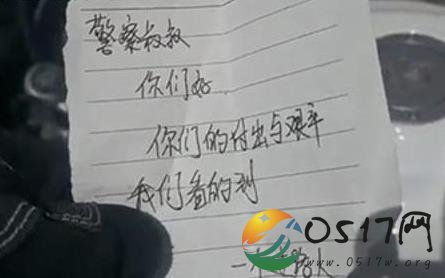 警察叔叔
你们好...
你们的付出与艰辛
我们看的到
0517网
www.0517w.org